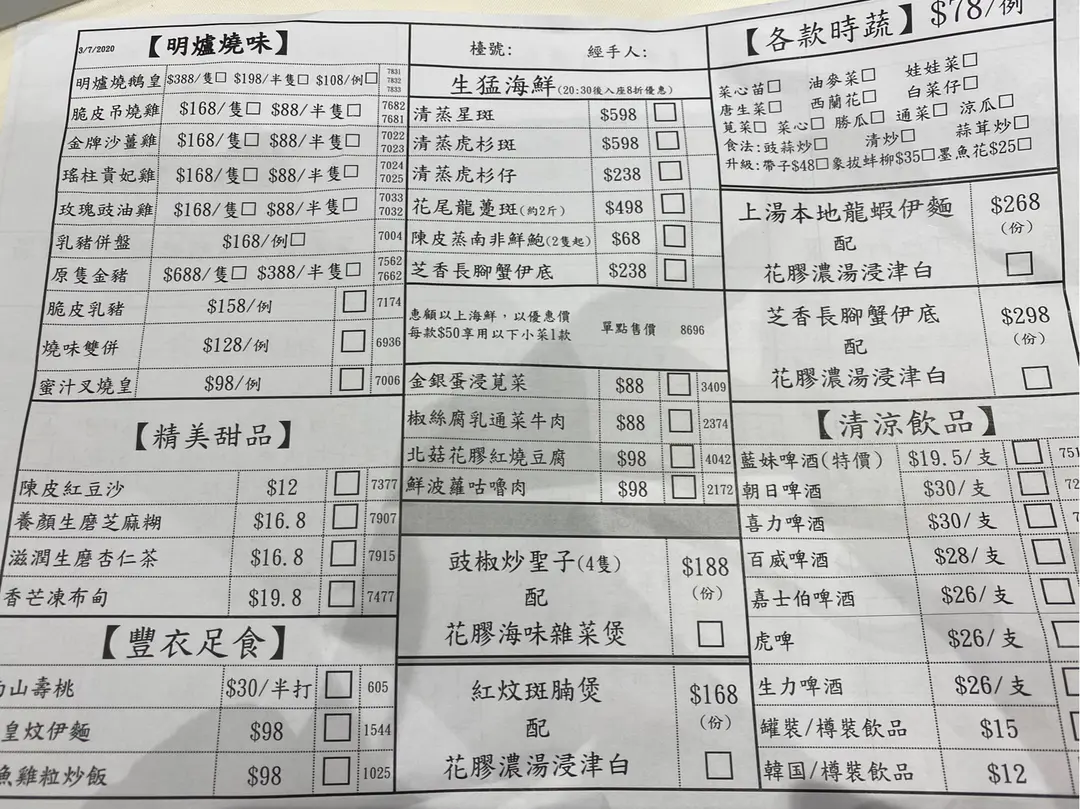 3/7/2020 【明爐燒味】
明爐燒鵝皇 $388/隻□ $198/半隻□ $108/例□ 7831 7832 7833
脆皮吊燒雞 $168/隻□ $88/半隻□ 7682 7681
金牌沙薑雞 $168/隻□ $88/半隻□ 7022 7023
瑤柱貴妃雞 $168/隻□ $88/半隻□ 7024 7025
玫瑰豉油雞 $168/隻□ $88/半隻□ 7033 7032
乳豬併盤 $168/例□ 7004
原隻金豬 $688/隻□ $388/半隻□ 7562 7662
脆皮乳豬 $158/例 □ 7174
燒味雙併 $128/例 □ 6936
蜜汁叉燒皇 $98/例 □ 7006
【精美甜品】
陳皮紅豆沙 $12 □ 7377
養顏生磨芝麻糊 $16.8 □ 7907
滋潤生磨杏仁茶 $16.8 □ 7915
香芒凍布甸 $19.8 □ 7477
【豐衣足食】
山壽桃 $30/半打 □ 605
皇炆伊麵 $98 □ 1544
魚雞粒炒飯 $98 □ 1025
檯號: 經手人:
生猛海鮮(20:30後入座8折優惠)
清蒸星斑 $598 □
清蒸虎杉斑 $598 □
清蒸虎杉仔 $238 □
花尾龍躉斑(約2斤) $498 □
陳皮蒸南非鮮鮑(2隻起) $68 □
芝香長腳蟹伊底 $238 □
惠顧以上海鮮，以優惠價
每款$50享用以下小菜1款 單點售價 8696
金銀蛋浸莧菜 $88 □ 3409
椒絲腐乳通菜牛肉 $88 □ 2374
北菇花膠紅燒豆腐 $98 □ 4042
鮮波蘿咕嚕肉 $98 □ 2172
豉椒炒聖子(4隻) $188
配 (份)
花膠海味雜菜煲 □
紅炆斑腩煲 $168
配 (份)
花膠濃湯浸津白 □
【各款時蔬】$78/例
菜心苗□ 油麥菜□ 娃娃菜□
唐生菜□ 西蘭花□ 白菜仔□
莧菜□ 菜心□ 勝瓜□ 通菜□ 涼瓜□
食法:豉蒜炒□ 清炒□ 蒜茸炒□
升級:帶子$48□象拔蚌柳$35□墨魚花$25□
上湯本地龍蝦伊麵 $268
配 (份)
花膠濃湯浸津白 □
芝香長腳蟹伊底 $298
配 (份)
花膠濃湯浸津白 □
【清涼飲品】
藍妹啤酒(特價) $19.5/支 □ 751
朝日啤酒 $30/支 □ 72
喜力啤酒 $30/支 □ 7
百威啤酒 $28/支 □
嘉士伯啤酒 $26/支 □
虎啤 $26/支 □
生力啤酒 $26/支
罐裝/樽裝飲品 $15
韓国/樽裝飲品 $12